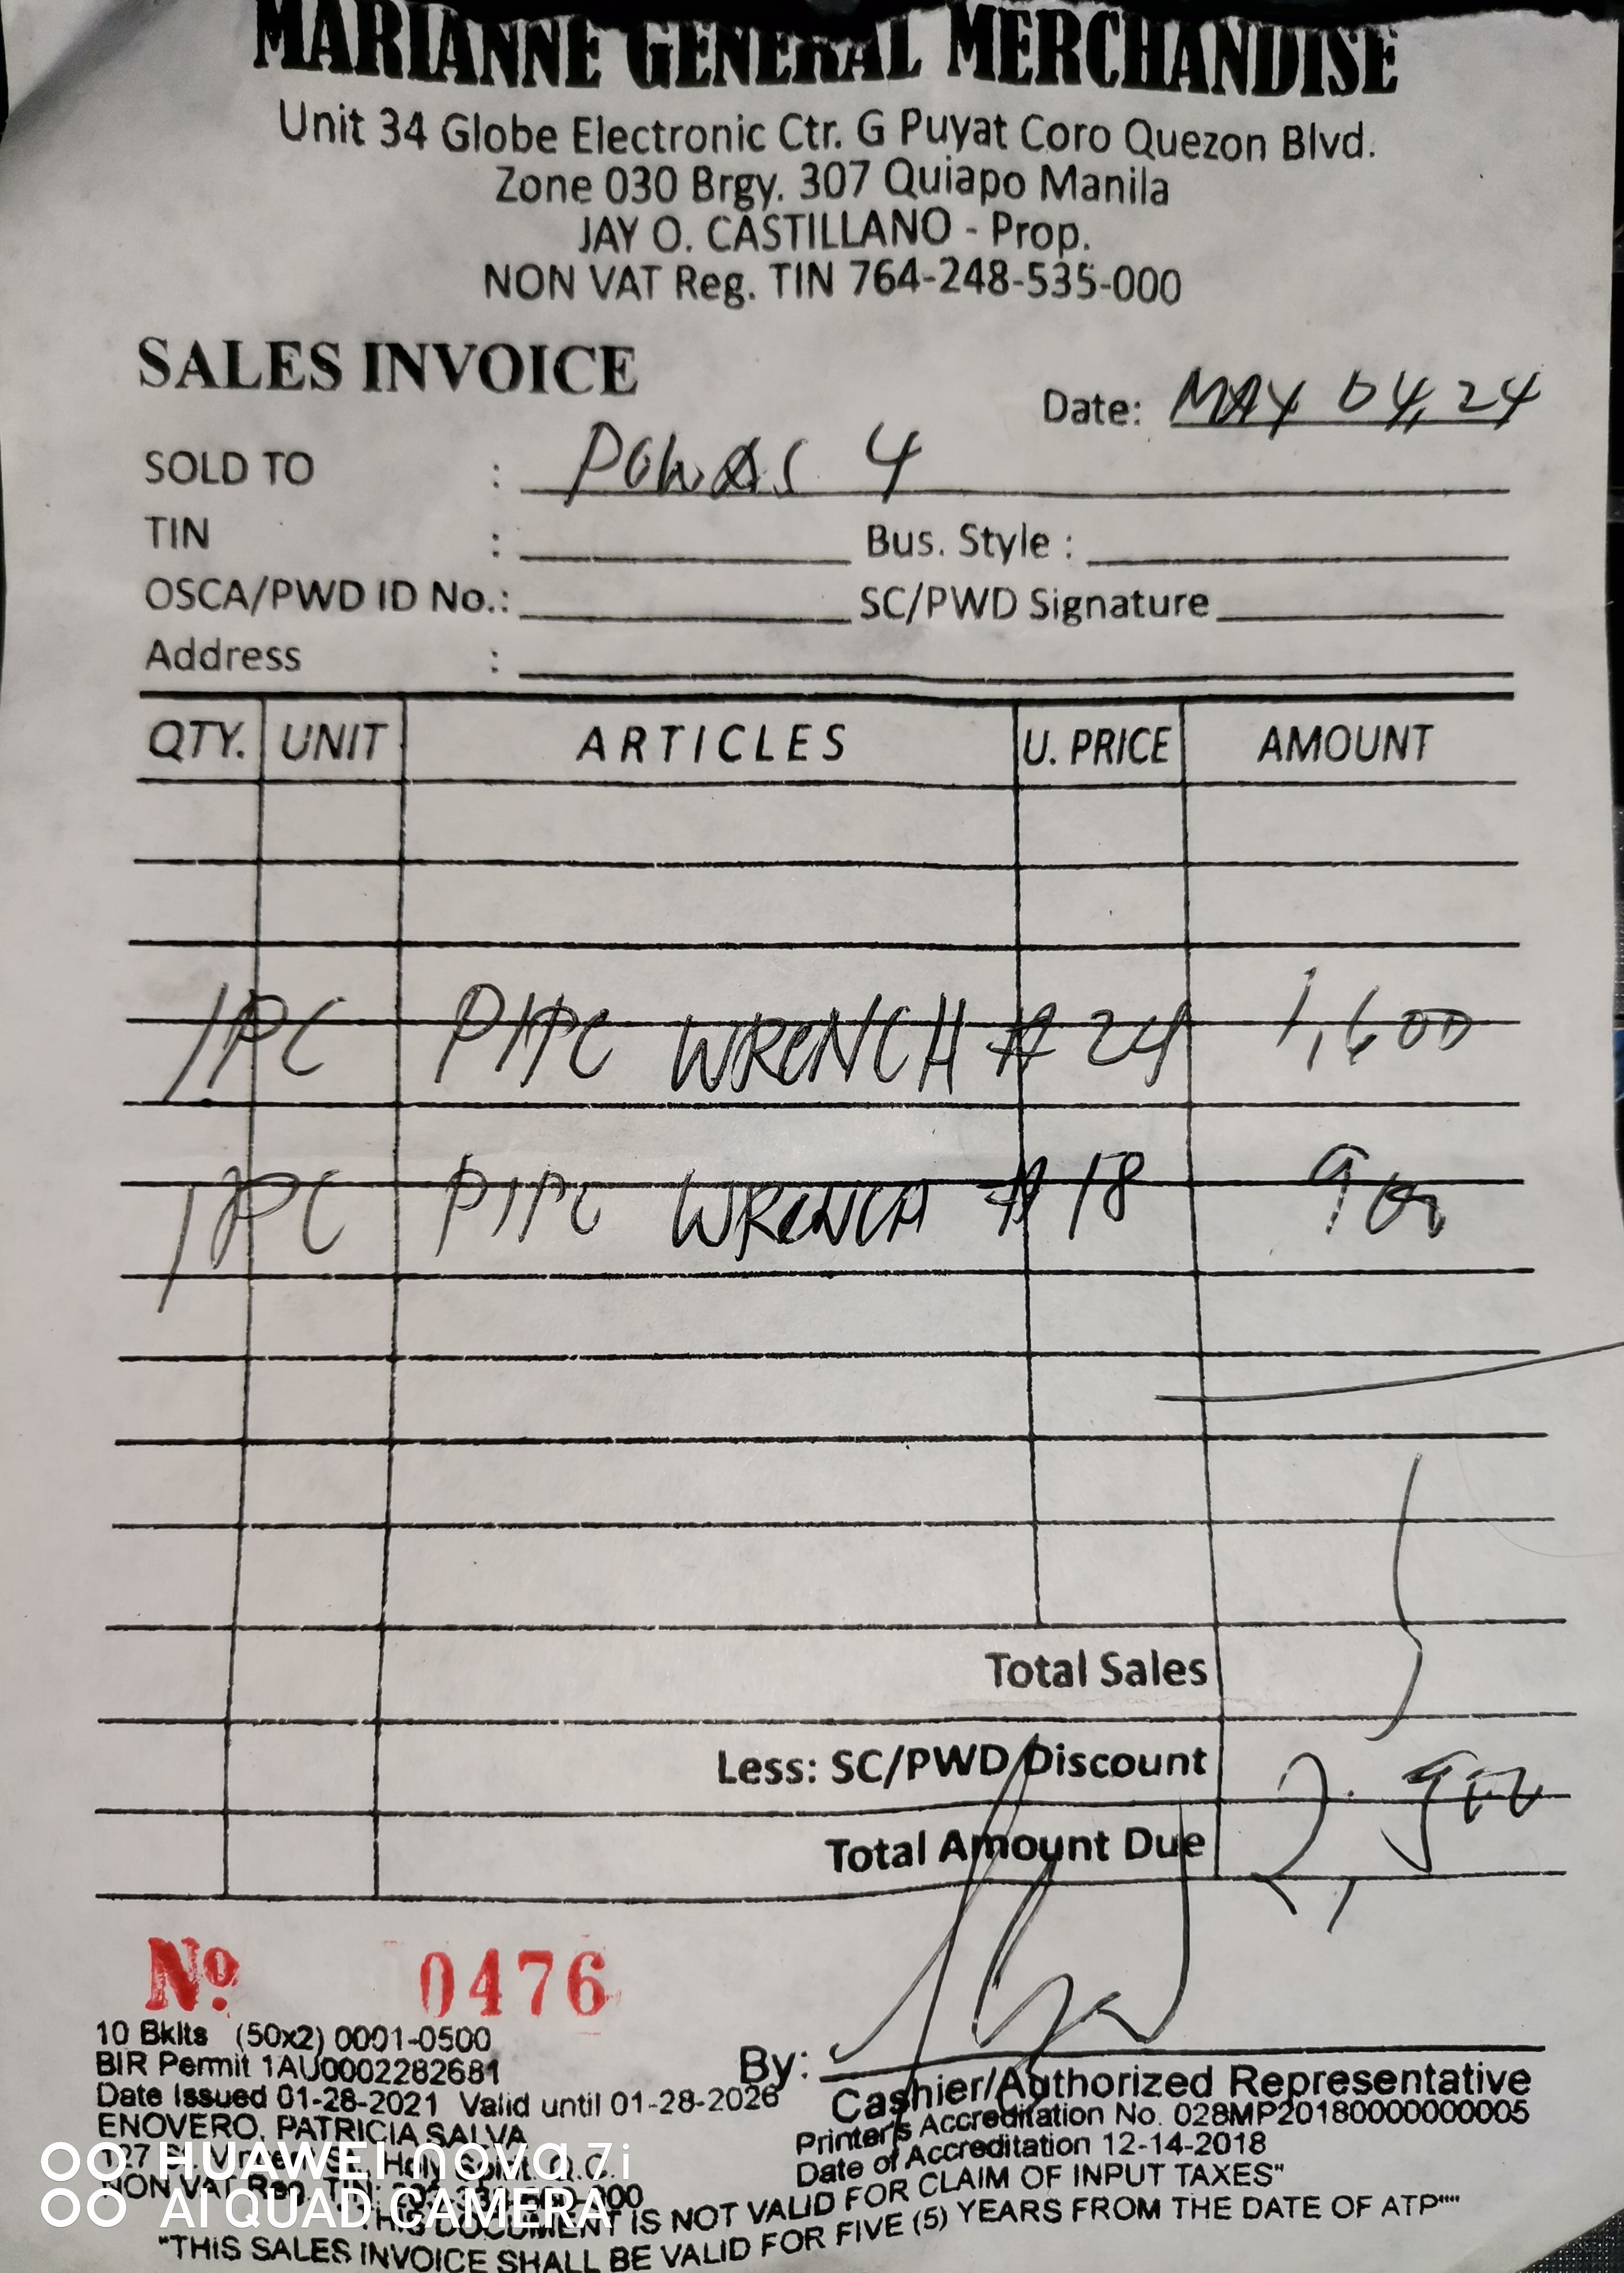 MARIANNE GENERAL MERCHANDISE
Unit 34 Globe Electronic Ctr. G Puyat Coro Quezon Blvd.
Zone 030 Brgy. 307 Quiapo Manila
JAY O. CASTILLANO - Prop.
NON VAT Reg. TIN 764-248-535-000
SALES INVOICE
Date: MAY 04, 24
SOLD TO : 4
TIN : Bus. Style :
OSCA/PWD ID No.: SC/PWD Signature
Address :
QTY. UNIT ARTICLES U. PRICE AMOUNT
1 PC PIPE WRENCH # 24 1,600
1 PC PIPE WRENCH # 18 900
Total Sales
Less: SC/PWD Discount
Total Amount Due
No. 0476
10 Bklts (50x2) 0001-0500
BIR Permit 1AU0002282681
Date Issued 01-28-2021 Valid until 01-28-2026
ENOVERO, PATRICIA SALVA
127 Holy Spirit. Q.C.
NON VAT Reg. TIN:
By:
Cashier/Authorized Representative
Printer's Accreditation No. 028MP20180000000005
Date of Accreditation 12-14-2018
"THIS DOCUMENT IS NOT VALID FOR CLAIM OF INPUT TAXES"
"THIS SALES INVOICE SHALL BE VALID FOR FIVE (5) YEARS FROM THE DATE OF ATP""
HUAWEI nova 7i
AI QUAD CAMERA